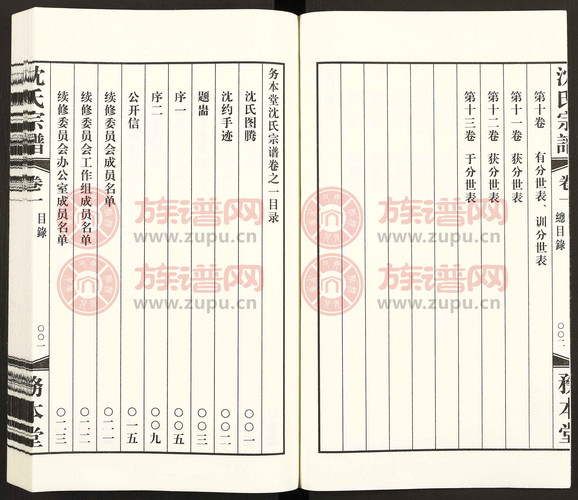 沈氏宗譜
卷一
總目錄
〇〇二
務本堂
第十卷 有分世表、训分世表
第十一卷 获分世表
第十二卷 获分世表
第十三卷 于分世表
务本堂沈氏宗谱卷之一目录
沈氏图腾 〇〇一
沈约手迹 〇〇二
题蕌 〇〇三
序一 〇〇五
序二 〇〇九
公开信 〇一五
续修委员会成员名单 〇二一
续修委员会工作组成员名单 〇二二
续修委员会办公室成员名单 〇二三
沈氏宗譜
卷一
目錄
〇〇一
務本堂
族谱网
www.zupu.cn
族谱网
www.zupu.cn
族谱网
www.zupu.cn
族谱网
www.zupu.cn